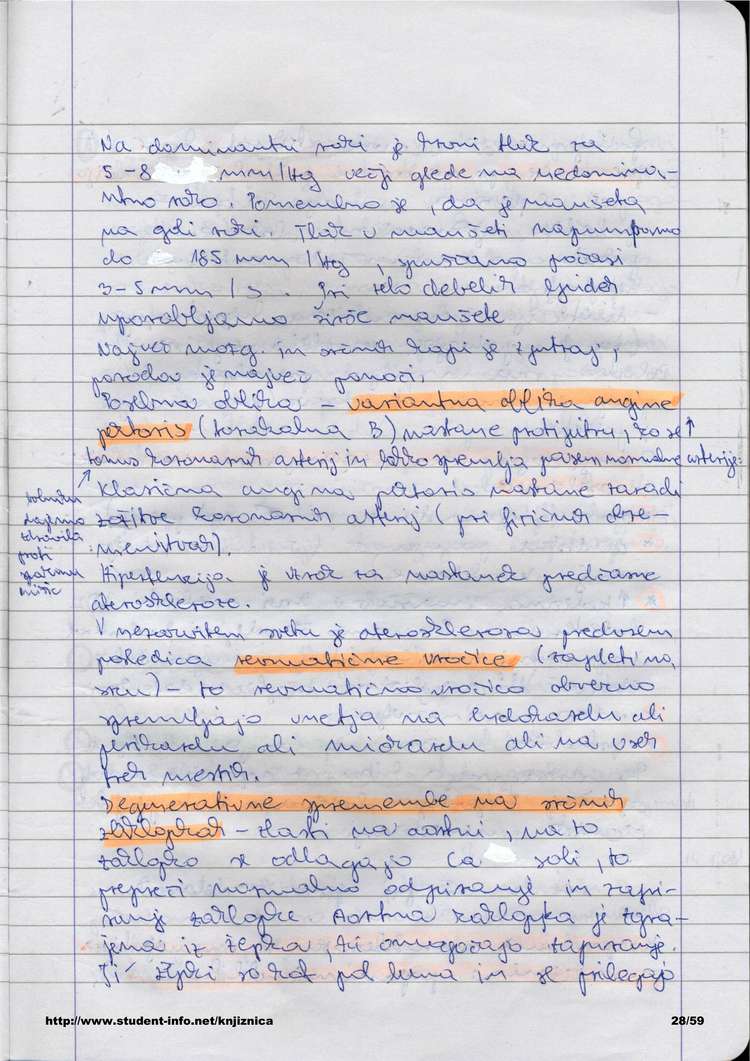 Na dominantni roki je krvni tlak za
5-8 mm/Hg večji glede na nedomina-
ntno roko. Pomembno je, da je manšeta
na goli roki. Tlak v manšeti napumpamo
do 185 mm/Hg, spuščamo počasi
3-5 mm/s. Pri zelo debelih ljudeh
uporabljamo širše manšete
Največ mozg. in srčnih kapi je zjutraj,
porodov je največ ponoči.
Posebna oblika - variantna oblika angine
pektoris (tonakalna B) nastane proti jutru, ko se ↑
tonus koronarnih arterij in lahko spremlja povsem normalne arterije.
Klasična angina pektoris nastane zaradi
zožitve koronarnih arterij (pri fizičnih obre-
menitvah).
bolniku
dajemo
zdravila
proti
spazmu
mišic
Hipertenzija je vzrok za nastanek predčasne
ateroskleroze.
V nerazvitem svetu je ateroskleroza predvsem
posledica revmatične vročice (zapleti na
srcu) - to revmatično vročico obvezno
spremljajo vnetja na endokardu ali
perikardu ali miokardu ali na vseh
treh mestih.
Degenerativne spremembe na srčnih
zaklopkah - zlasti na aortni, na to
zaklopko se odlagajo Ca soli, to
prepreči normalno odpiranje in zapi-
ranje zaklopke. Aortna zaklopka je zgra-
jena iz žepka, ki omogočajo zapiranje.
Ti žepki so kot pol luna in se prilegajo
http://www.student-info.net/knjiznica
28/59